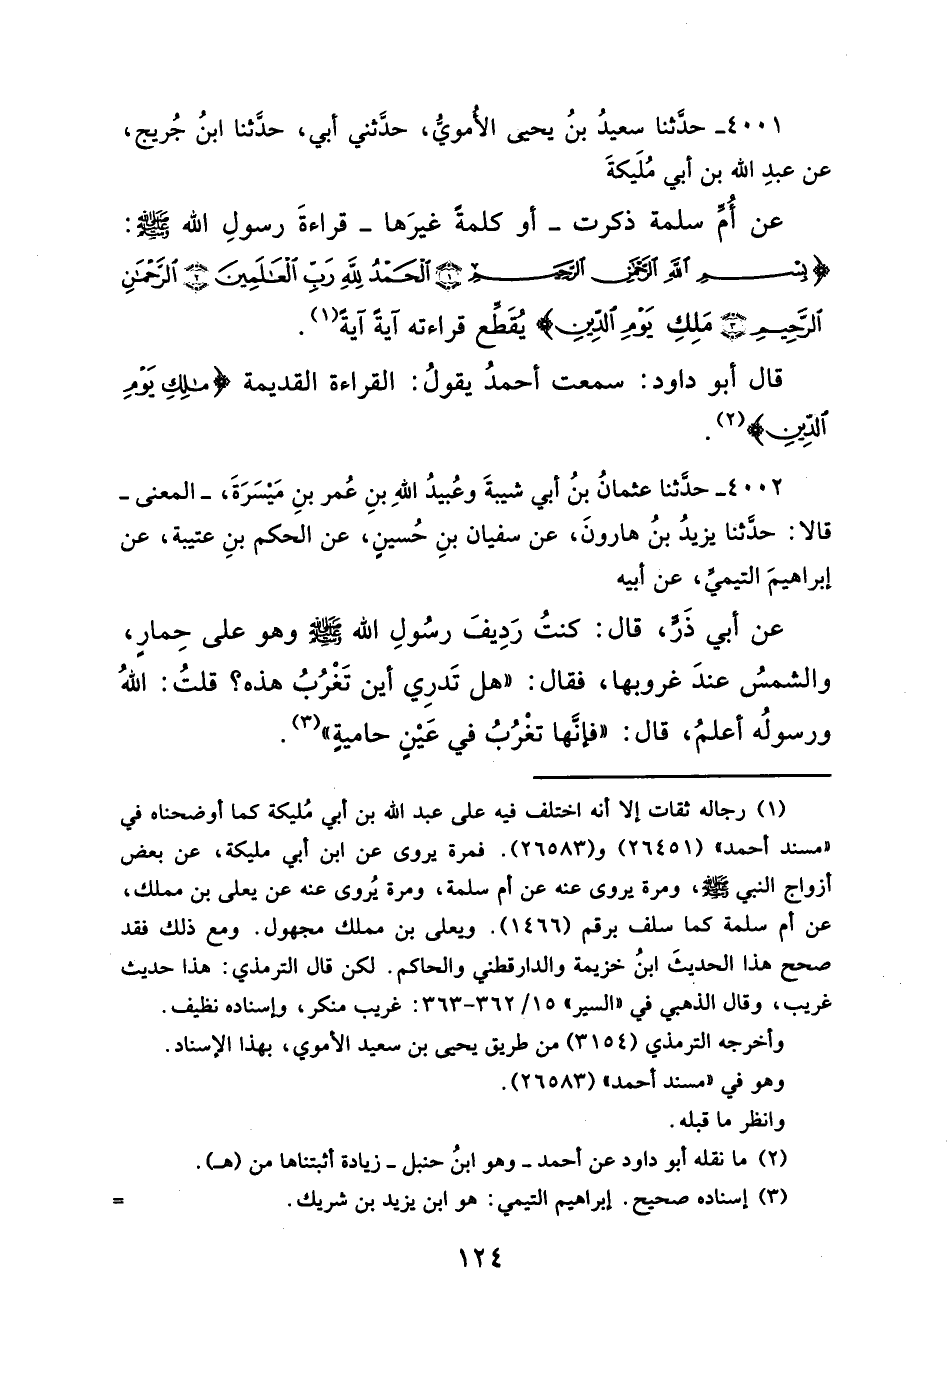 ٤٠٠١ـ حدَّثنا سعيدُ بنُ يحيى الأُمويُّ، حدَّثني أبي، حدَّثنا ابنُ جُريج،
عن عبدِ الله بن أبي مُلَيكةَ
عن أُمِّ سلمة ذكرت ـ أو كلمةً غيرَها ـ قراءةَ رسولِ الله ﷺ:
﴿بِسْمِ ٱللَّهِ ٱلرَّحْمَٰنِ ٱلرَّحِيمِ ۝١ ٱلْحَمْدُ لِلَّهِ رَبِّ ٱلْعَٰلَمِينَ ۝٢ ٱلرَّحْمَٰنِ
ٱلرَّحِيمِ ۝٣ مَلِكِ يَوْمِ ٱلدِّينِ﴾ يُقَطِّع قراءته آيةً آيةً(١).
قال أبو داود: سمعت أحمدُ يقولُ: القراءة القديمة ﴿مَٰلِكِ يَوْمِ
ٱلدِّينِ﴾(٢).
٤٠٠٢ـ حدَّثنا عثمانُ بنُ أبي شيبةَ وعُبيدُ اللهِ بنِ عُمر بنِ مَيْسَرَةَ، ـ المعنى ـ
قالا: حدَّثنا يزيدُ بنُ هارونَ، عن سفيان بنِ حُسينٍ، عن الحكم بنِ عتيبة، عن
إبراهيمَ التيميِّ، عن أبيه
عن أبي ذَرٍّ، قال: كنتُ رَدِيفَ رسُولِ الله ﷺ وهو على حِمارٍ،
والشمسُ عندَ غروبها، فقال: «هل تَدرِي أين تَغْرُبُ هذه؟ قلتُ: اللهُ
ورسولُه أعلمُ، قال: «فإنَّها تغْرُبُ في عَيْنٍ حاميةٍ»(٣).
(١) رجاله ثقات إلا أنه اختلف فيه على عبد الله بن أبي مُليكة كما أوضحناه في
«مسند أحمد» (٢٦٤٥١) و(٢٦٥٨٣). فمرة يروى عن ابن أبي مليكة، عن بعض
أزواج النبي ﷺ، ومرة يروى عنه عن أم سلمة، ومرة يُروى عنه عن يعلى بن مملك،
عن أم سلمة كما سلف برقم (١٤٦٦). ويعلى بن مملك مجهول. ومع ذلك فقد
صحح هذا الحديثَ ابنُ خزيمة والدارقطني والحاكم. لكن قال الترمذي: هذا حديث
غريب، وقال الذهبي في «السير» ١٥/ ٣٦٢-٣٦٣: غريب منكر، وإسناده نظيف.
وأخرجه الترمذي (٣١٥٤) من طريق يحيى بن سعيد الأموي، بهذا الإسناد.
وهو في «مسند أحمد» (٢٦٥٨٣).
وانظر ما قبله.
(٢) ما نقله أبو داود عن أحمد ـ وهو ابنُ حنبل ـ زيادة أثبتناها من (هـ).
(٣) إسناده صحيح. إبراهيم التيمي: هو ابن يزيد بن شريك. =
١٢٤